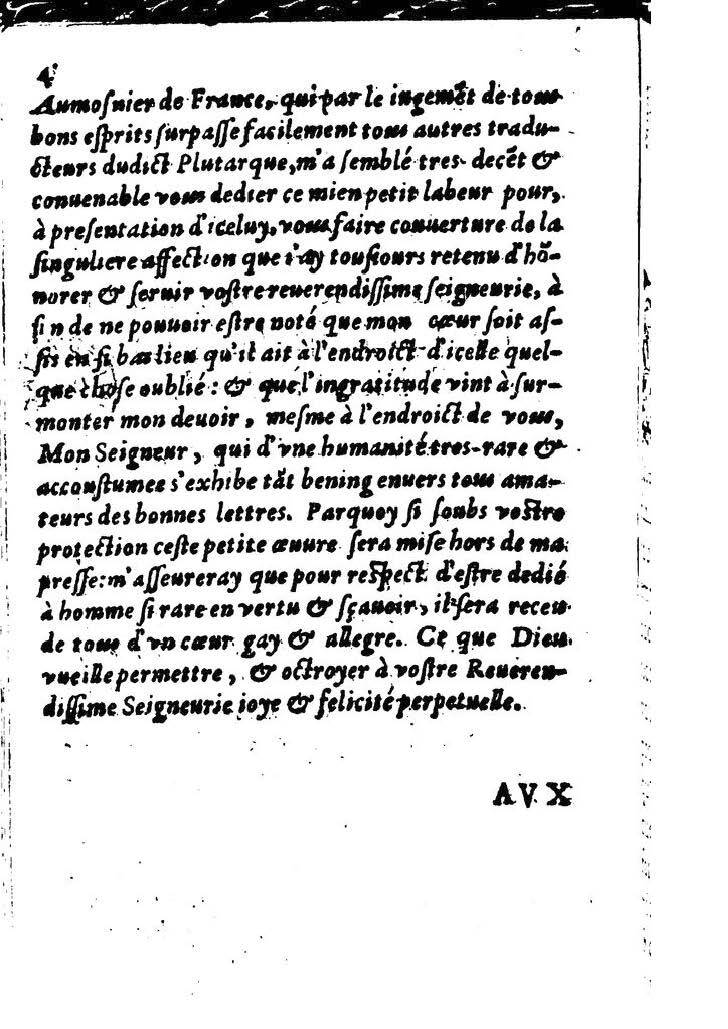 4
Aumoſnier de France, qui par le iugemẽt de tous
bons eſprits ſurpaſſe facilement tous autres tradu-
cteurs dudict Plutarque, m'a ſemblé tres-decẽt &
conuenable vous dedier ce mien petit labeur pour,
à preſentation d'iceluy, vous faire couuerture de la
ſinguliere affection que i'ay touſiours retenu d'hõ-
norer & ſeruir voſtre reuerendiſſime ſeigneurie, à
fin de ne pouuoir eſtre noté que mon cœur ſoit aſ-
ſis en ſi bas lieu qu'il ait à l'endroict d'icelle quel-
que choſe oublié: & que l'ingratitude vint à ſur-
monter mon deuoir, meſme à l'endroict de vous,
Mon Seigneur, qui d'vne humanité tres-rare &
accouſtumee s'exhibe tãt bening enuers tous ama-
teurs des bonnes lettres. Parquoy ſi ſoubs voſtre
protection ceſte petite œuure ſera miſe hors de ma
preſſe: m'aſſeureray que pour reſpect d'eſtre dedié
à homme ſi rare en vertu & ſçauoir, il ſera receu
de tous d'vn cœur gay & allegre. Ce que Dieu
vueille permettre, & octroyer à voſtre Reueren-
diſſime Seigneurie ioye & felicité perpetuelle.
AVX